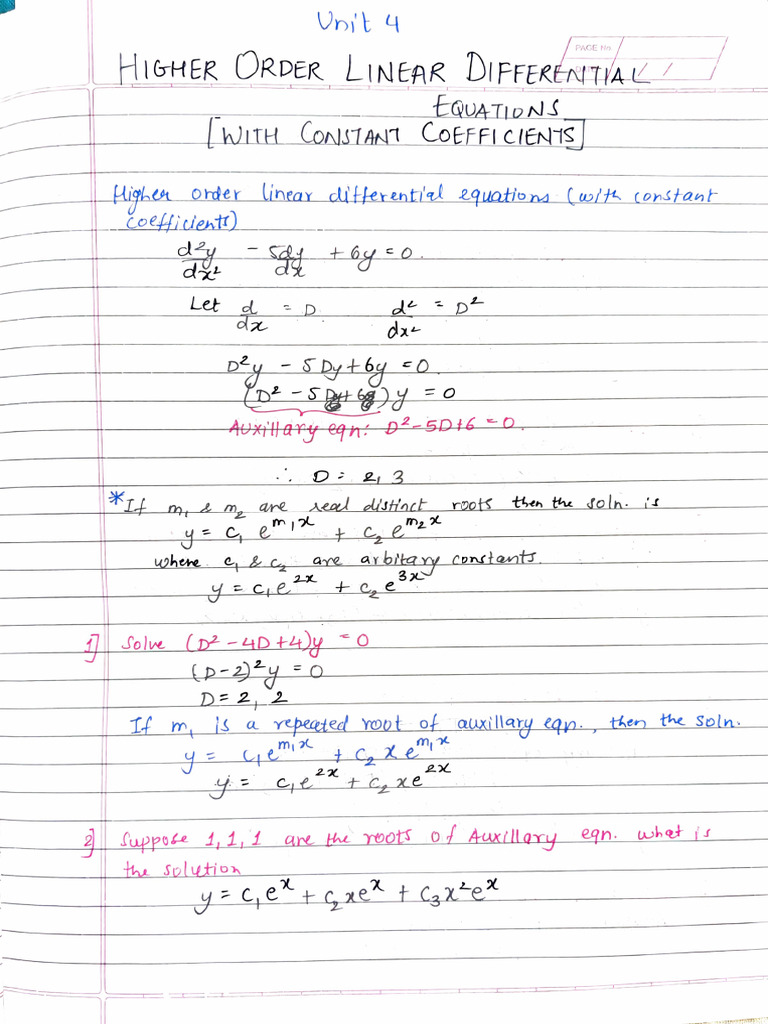 Unit 4
PAGE No.
HIGHER ORDER LINEAR DIFFERENTIAL
/ /
EQUATIONS
[WITH CONSTANT COEFFICIENTS]
Higher order linear differential equations (with constant
coefficients)
d²y/dx² - 5dy/dx + 6y = 0.
Let d/dx = D. d²/dx² = D²
D²y - 5Dy + 6y = 0.
(D² - 5D + 6)y = 0
Auxillary eqn: D² - 5D + 6 = 0.
∴ D = 2, 3
*If m₁ & m₂ are real distinct roots then the soln. is
y = c₁ e^m₁x + c₂ e^m₂x
where c₁ & c₂ are arbitary constants.
y = c₁e^2x + c₂e^3x
1] Solve (D² - 4D + 4)y = 0
(D-2)²y = 0
D = 2, 2
If m₁ is a repeated root of auxillary eqn., then the soln.
y = c₁e^m₁x + c₂ x e^m₁x
y = c₁e^2x + c₂ xe^2x
2] Suppose 1, 1, 1 are the roots of Auxillary eqn. what is
the solution
y = c₁e^x + c₂xe^x + c₃x²e^x